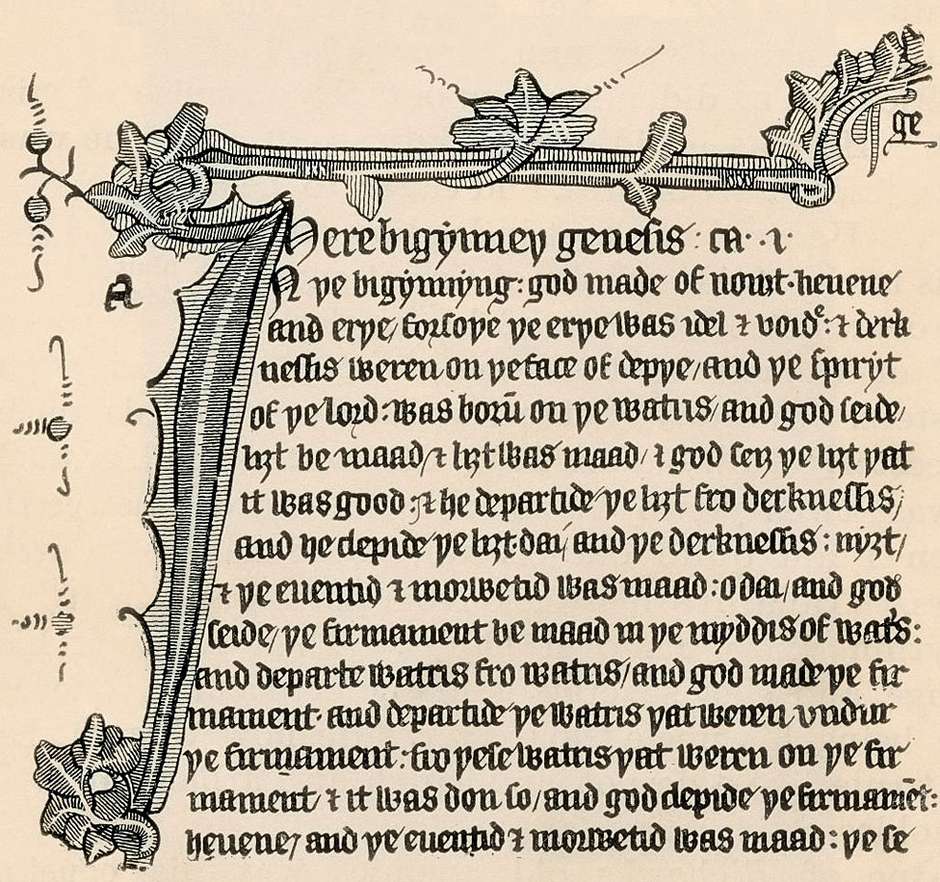 ge
Here bigynneþ genesis: ca· ·i·
a
In þe bigynnyng: god made of nouȝt·heuene
and erþe, forsoþe þe erþe was idel ⁊ voide: ⁊ derk
nessis weren on þe face of depþe, and þe spiryt
of þe lord: was borū on þe watris, and god seide,
liȝt be maad, ⁊ liȝt was maad, ⁊ god seiȝ þe liȝt þat
it was good: ⁊ he departide þe liȝt fro derknessis,
and he clepide þe liȝt·dai, and þe derknessis: nyȝt,
⁊ þe euentid ⁊ morwetid was maad: o dai, and god
seide, þe firmament be maad in þe myddis of watˢs:
and departe watris fro watris, and god made þe fir
mament· and departide þe watris þat weren vndur
þe firmament: fro þese watris þat weren on þe fir
mament, ⁊ it was don so, and god clepide þe firmamēt:
heuene, and þe euentid ⁊ morwetid was maad: þe se